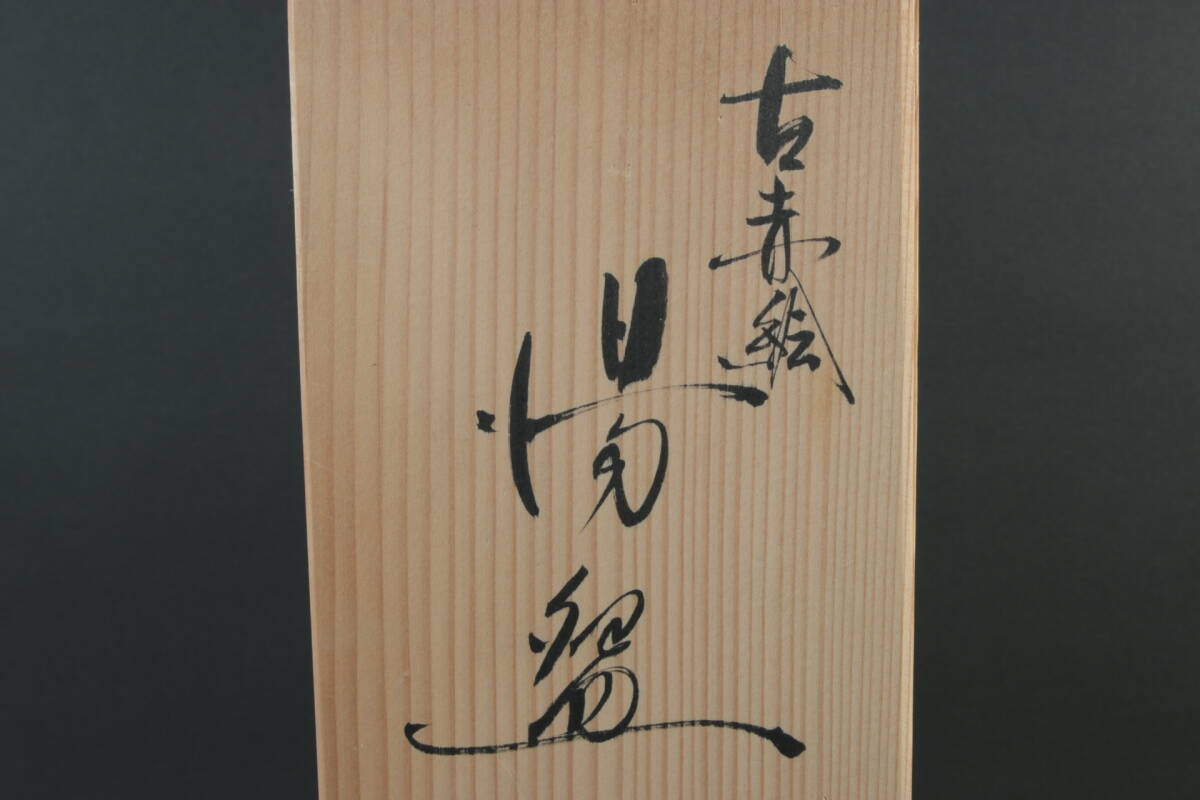 古赤絵
湯盌